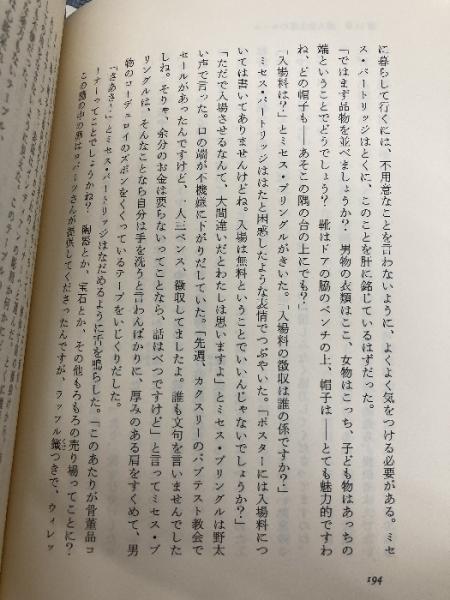 に暮らして行くには、不用意なことを言わないように、よくよく気をつける必要がある。ミセ
ス・パートリッジはとくに、このことを肝に銘じているはずだった。
「ではまず品物を並べましょうか？　男物の衣類はここ、女物はこっち、子ども物はあっちの
端ということでどうでしょう？　靴はドアの脇のベンチの上、帽子は――とても魅力的ですわ
ね、どの帽子も――あそこの隅の台の上にでも？」
「入場料は？」とミセス・プリングルがきいた。「入場料の徴収は誰の係ですか？」
ミセス・パートリッジははたと困惑したような表情でつぶやいた。「ポスターには入場料につ
いては書いてありませんけどね。入場は無料ということでいいんじゃないでしょうか？」
「ただで入場させるなんて、大間違いだとわたしは思いますよ」とミセス・プリングルは野太
い声で言った。口の端が不機嫌に下がりだしていた。「先週、カクスリーのバプテスト教会で
セールがあったんですけど、一人三ペンス、徴収してましたよ。誰も文句を言いませんでした
しね。そりゃ、余分のお金は要らないってことなら、話はべつですけど」と言ってミセス・プ
リングルは、そんなことなら自分は手を洗うと言わんばかりに、厚みのある肩をすくめて、男
物のコーデュロイのズボンをくくっているテープをいじくりだした。
「さあさ！」とミセス・パートリッジはなだめるように舌を鳴らした。「このあたりが骨董品コ
ーナーってことでしょうかね？　陶器とか、宝石とか、その他もろもろの売り場ってことに？
この
の中の
はロバーツさんが提供してくださったんですが、ラッフル籤つきで、ウィレッ
194